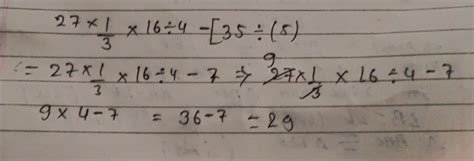 27 × 1/3 × 16 ÷ 4 - [35 ÷ (5)
∴ = 27 × 1/3 × 16 ÷ 4 - 7 ⇒ 9 27 × 1/3 × 16 ÷ 4 - 7
9 × 4 - 7 = 36 - 7 = 29